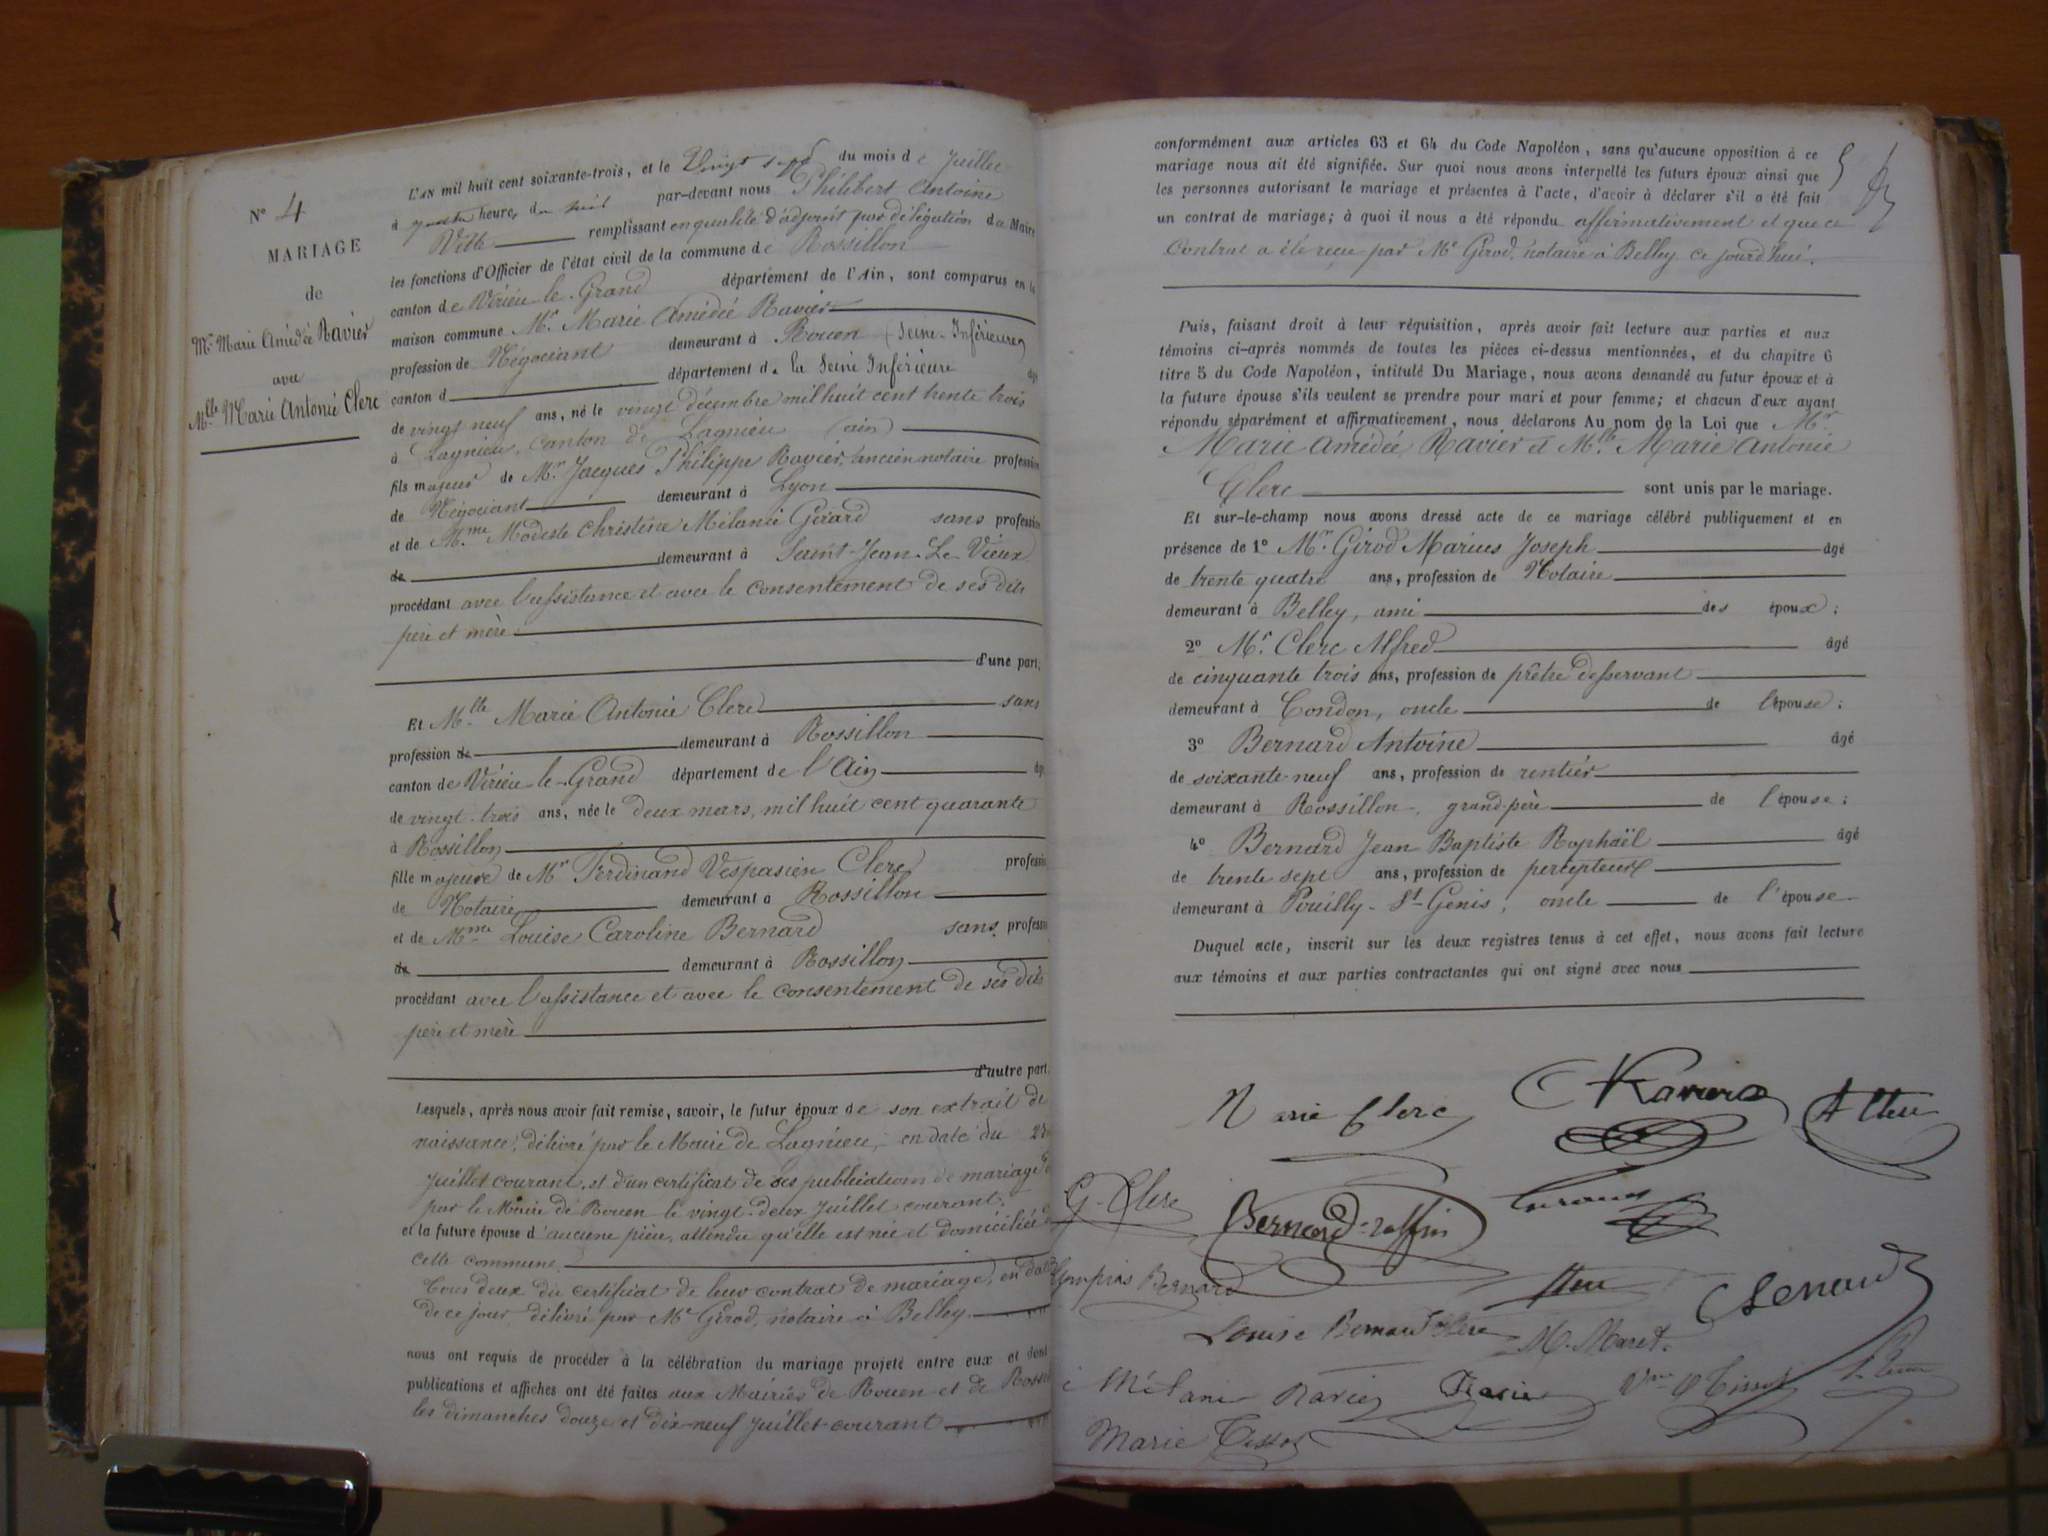 N° 4
MARIAGE
de
Mr Marie Amédée Ravier
avec
Mlle Marie Antonie Clerc
L'AN mil huit cent soixante-trois, et le Vingt sept du mois de Juillet
à quatre heures du soir par-devant nous Philibert Antoine
remplissant en qualité d'adjoint par délégation du Maire
les fonctions d'Officier de l'état civil de la commune de Rossillon
canton de Virieu-le-Grand département de l'Ain, sont comparus en la
maison commune Mr. Marie Amédée Ravier
profession de Négociant demeurant à Rouen (Seine-Inférieure)
canton d département de la Seine Inférieure âgé
de vingt neuf ans, né le vingt décembre mil huit cent trente trois
à Lagnieu, canton de Lagnieu (ain)
fils majeur de Mr. Jacques Philippe Ravier, ancien notaire profession
de Négociant demeurant à Lyon
et de Mme Modeste Christine Mélanie Girard sans profession
de demeurant à Saint-Jean-Le-Vieux
procédant avec l'assistance et avec le consentement de ses dits
père et mère
d'une part;
Et Mlle Marie Antonie Clerc sans
profession de demeurant à Rossillon
canton de Virieu-le-Grand département de l'Ain âgé
de vingt-trois ans, née le deux mars, mil huit cent quarante
à Rossillon
fille majeure de Mr Ferdinand Vespasien Clerc profession
de Notaire demeurant à Rossillon
et de Mme Louise Caroline Bernard sans profession
de demeurant à Rossillon
procédant avec l'assistance et avec le consentement de ses dits
père et mère
d'autre part.
Lesquels, après nous avoir fait remise, savoir, le futur époux de son extrait de
naissance, délivré par le Maire de Lagnieu, en date du
Juillet courant, et d'un certificat de ses publications de mariage
par le Maire de Rouen le vingt-deux Juillet courant.
et la future épouse d'aucune pièce, attendu qu'elle est née et domiciliée
cette commune
Tous deux du certificat de leur contrat de mariage, en date
de ce jour, délivré par Me Girod, notaire à Belley
nous ont requis de procéder à la célébration du mariage projeté entre eux et dont
publications et affiches ont été faites aux Mairies de Rouen et de Rossillon
les dimanches douze et dix-neuf Juillet courant
conformément aux articles 63 et 64 du Code Napoléon, sans qu'aucune opposition à ce
mariage nous ait été signifiée. Sur quoi nous avons interpellé les futurs époux ainsi que
les personnes autorisant le mariage et présentes à l'acte, d'avoir à déclarer s'il a été fait
un contrat de mariage; à quoi il nous a été répondu affirmativement et que ce
Contrat a été reçu par Me Girod, notaire à Belley ce jourd'hui.
Puis, faisant droit à leur réquisition, après avoir fait lecture aux parties et aux
témoins ci-après nommés de toutes les pièces ci-dessus mentionnées, et du chapitre 6
titre 5 du Code Napoléon, intitulé Du Mariage, nous avons demandé au futur époux et à
la future épouse s'ils veulent se prendre pour mari et pour femme; et chacun d'eux ayant
répondu séparément et affirmativement, nous déclarons Au nom de la Loi que Mr
Marie Amédée Ravier et Mlle Marie Antonie
Clerc sont unis par le mariage.
Et sur-le-champ nous avons dressé acte de ce mariage célébré publiquement et en
présence de 1° Mr. Girod Marius Joseph âgé
de trente quatre ans, profession de Notaire
demeurant à Belley, ami des époux;
2° Mr. Clerc Alfred âgé
de cinquante trois ans, profession de prêtre desservant
demeurant à Condon, oncle de l'épouse;
3° Bernard Antoine âgé
de soixante-neuf ans, profession de rentier
demeurant à Rossillon, grand-père de l'épouse;
4° Bernard Jean Baptiste Raphaël âgé
de trente sept ans, profession de percepteur
demeurant à Pouilly-St-Genis, oncle de l'épouse
Duquel acte, inscrit sur les deux registres tenus à cet effet, nous avons fait lecture
aux témoins et aux parties contractantes qui ont signé avec nous
Marie Clerc
G. Clerc
Bernard
Louise Bernard Clerc
M. Maret
Mélanie Ravier
Ravier
Marie Tissot